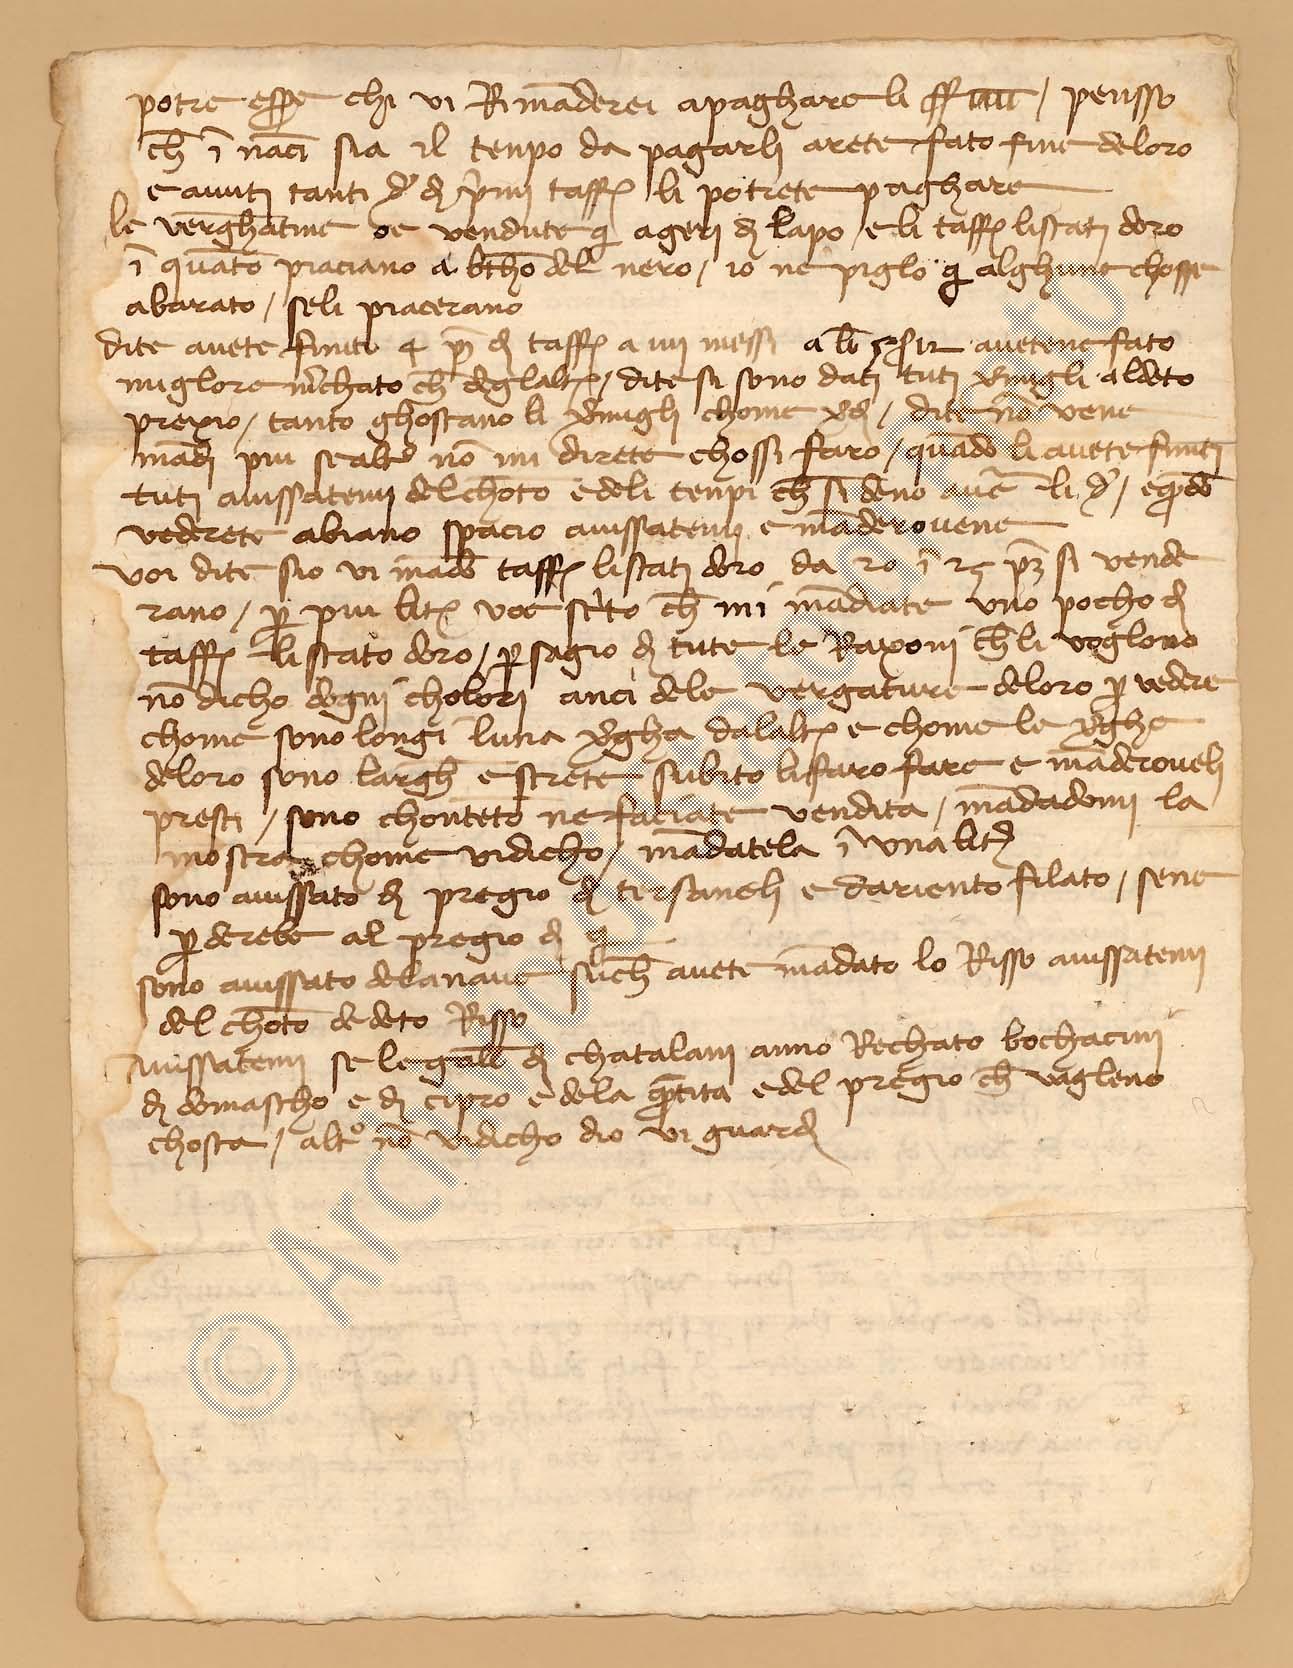 potre essere chi vi Rimāderei a paghare li / pensso
ch̄ ī nāci sia il tenpo da pagarli arete fato fine deloro
e auuti tanti d' di p̄imi taff. li potrete paghare
le verghatine oe vendute q̄ a geri di lapo / e li taff. liscati doro
ī quāto piaciano a bt̄ho del nero / io ne piglo q̄ alghune chosse
abarato / seli piacerano
dite avete finiti 4 pz̄ di taff. a mesi a lb̄ avetene fato
miglore m̄chato ch̄ deglalt. / dite si sono dati tuti v̄migli al deto
prexio / tanto ghostano li v̄migli chome v̄di / dite nō vene
mādi piu sealt° nō mi direte chossi faro / quādo li avete finiti
tuti avissatemi del chōto e deli tenpi ch̄ si deno aue li d' / e q̄do
vederete abiano spacio avissatemi e māderovene
voi dite sio vi mādo taff. liscati doro da 20 ī 25 pz̄ si vende
rano / p̄ piu let. voe sc̄ito ch̄ mi mādiate uno pocho di
taff. liscato doro / p̄ sagio di tute le Raxoni ch̄ li voglono
nō dicho dogni cholori anci dele vergature deloro p̄ vedere
chome sono longi luna v̄gha dalalt. e chome le v̄ghe
deloro sono largh̄ e strete subito li faro fare e māderoveli
presti / sono chōtēto ne faciate vendita / mādadomi la
mostra chome vi dicho / mādatela ī una let.
sono avissato di pregio di tersaneli e dariento filato / sene
p̄derebe al pregio di q̄
sono avissato dela nave su ch̄ avete mādato lo Risso avissatemi
del chōto de deto Risso
Avissatemi se le galee di chatalani anno Rechato bochacini
di domascho e di cipro e dela q̄tita e del pregio ch̄ vagleno
chosta / alt° nō vi dicho dio vi guardi
© Archivio di Stato di Prato